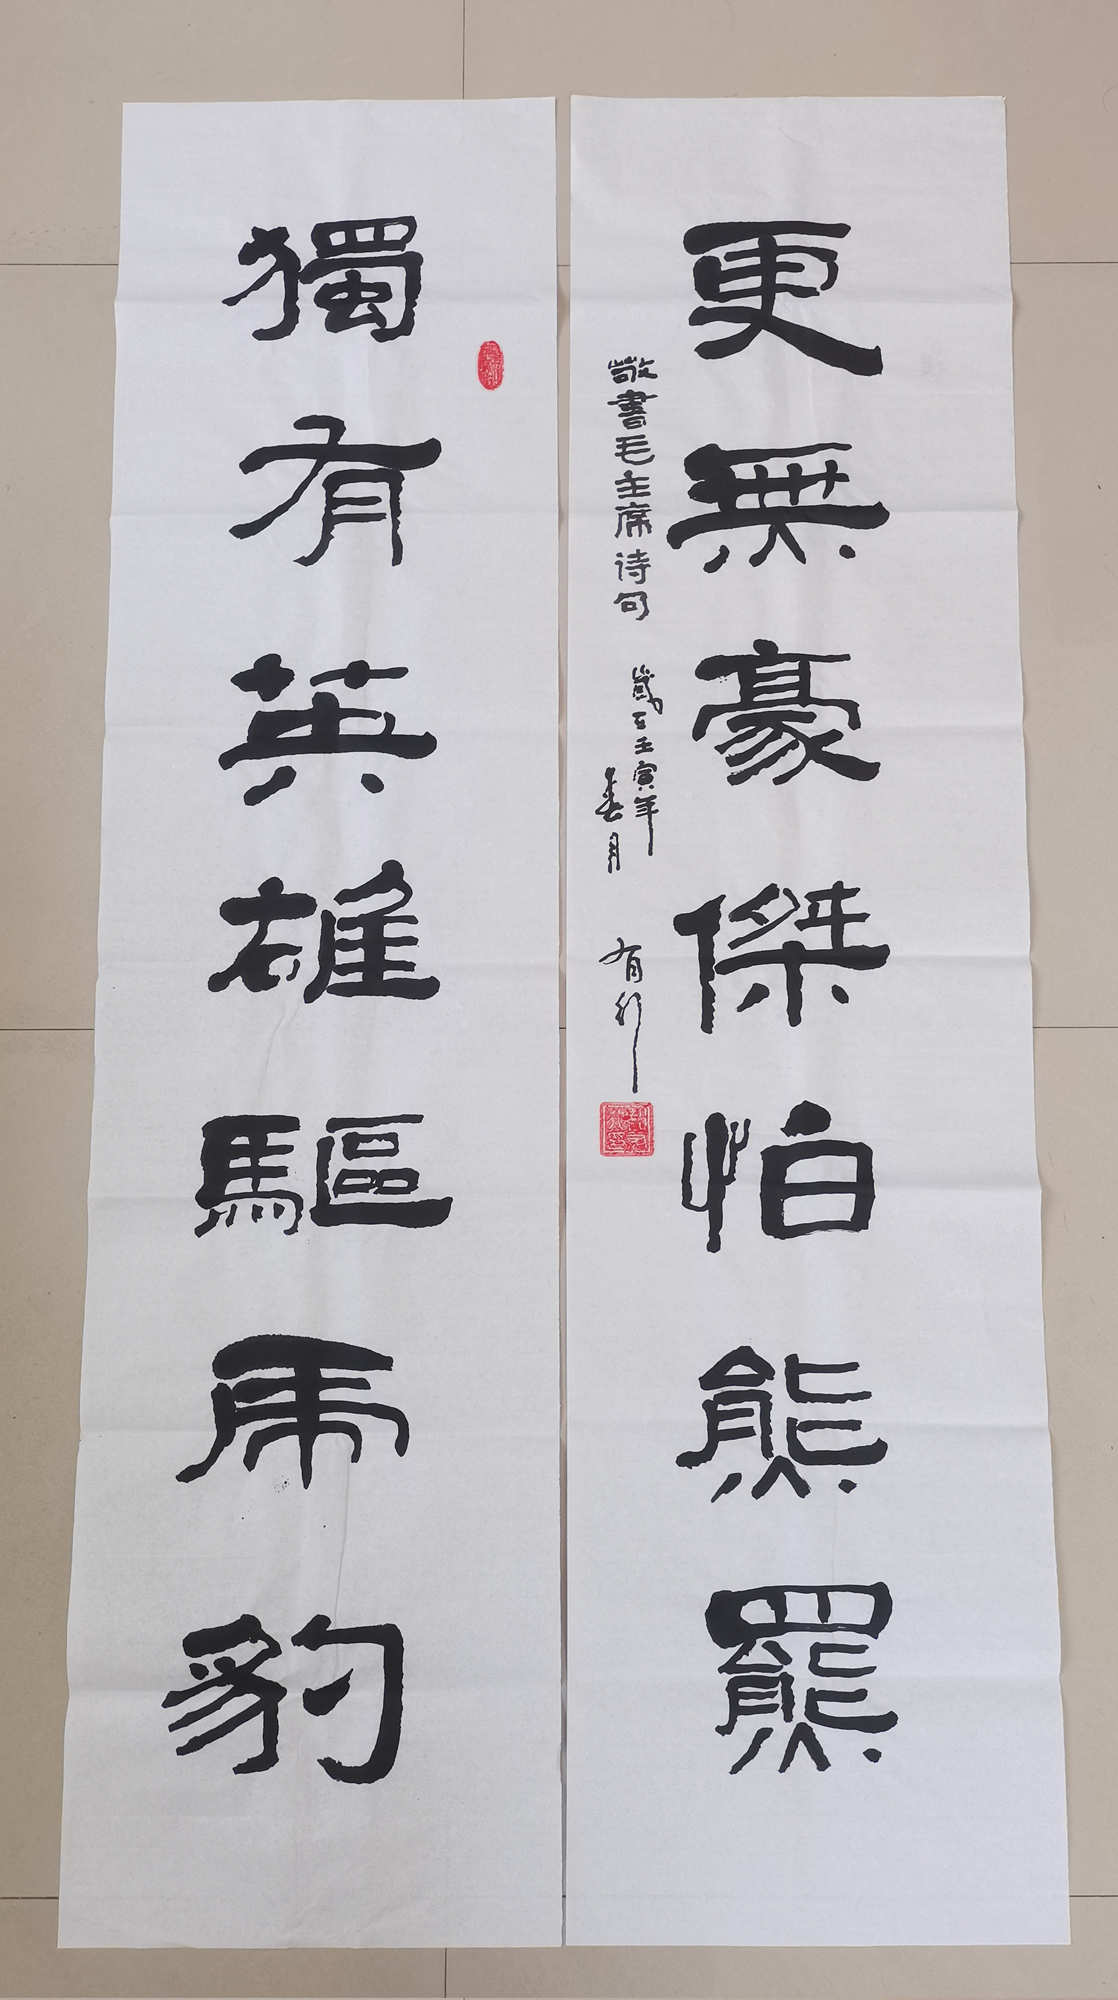 獨有英雄驅虎豹
更無豪傑怕熊羆
敬書毛主席诗句
歲在壬寅年
春月